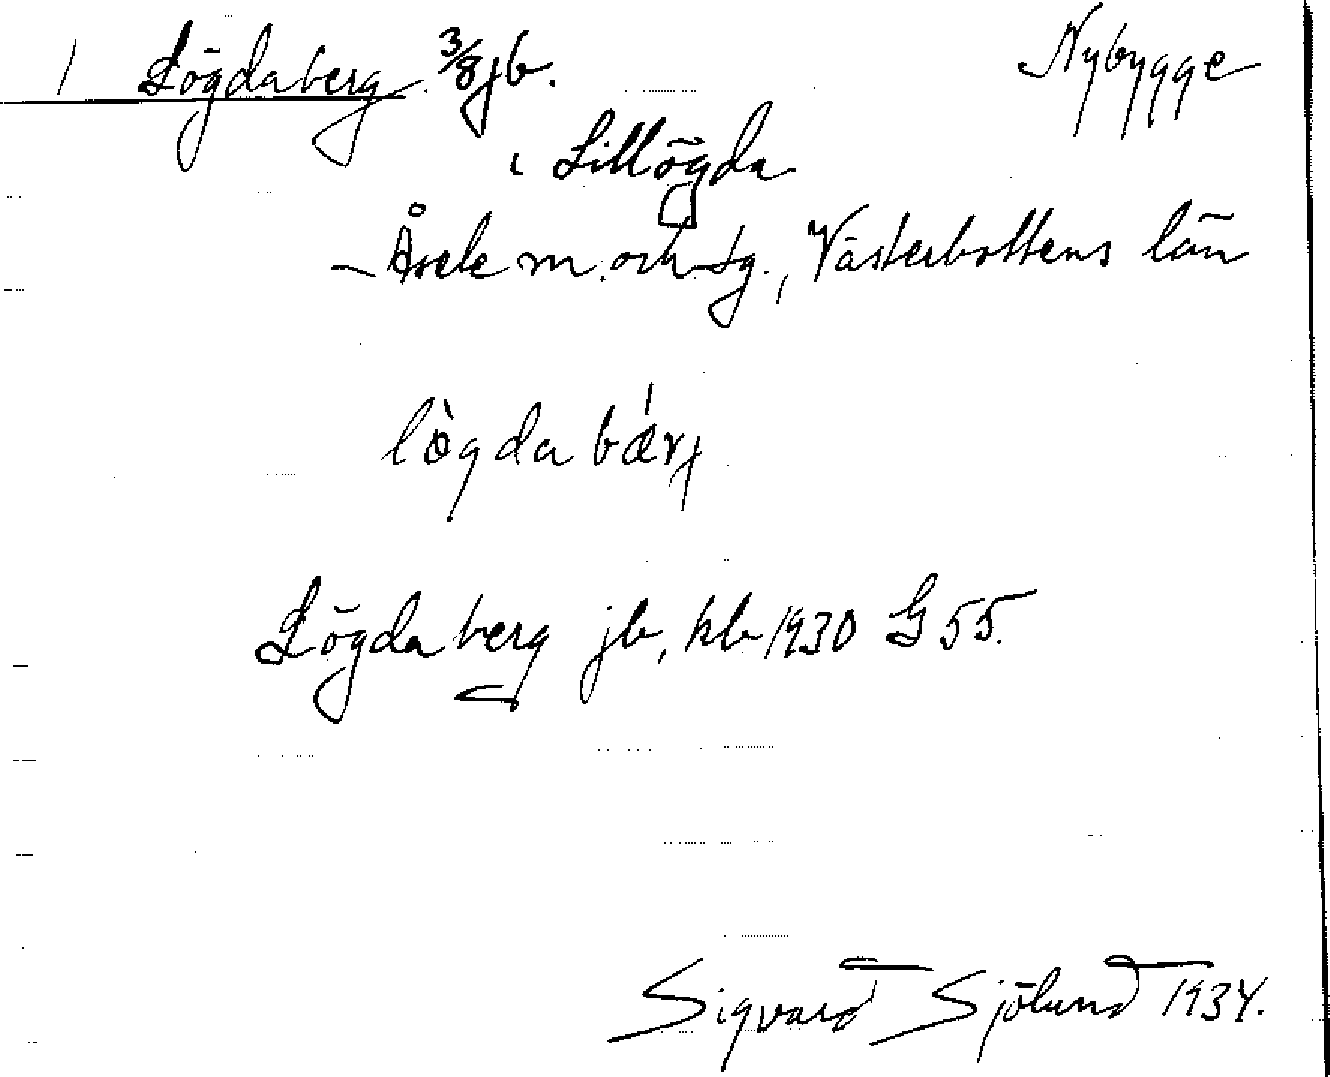 1 Lögdaberg 3/8 jb. Nybygge
i Lillögda
Åsele m. och tg., Västerbottens län
lò̀gda bǽrj
Lögdaberg jb, kb 1930 G 55.
Sigvard Sjölund 1934.